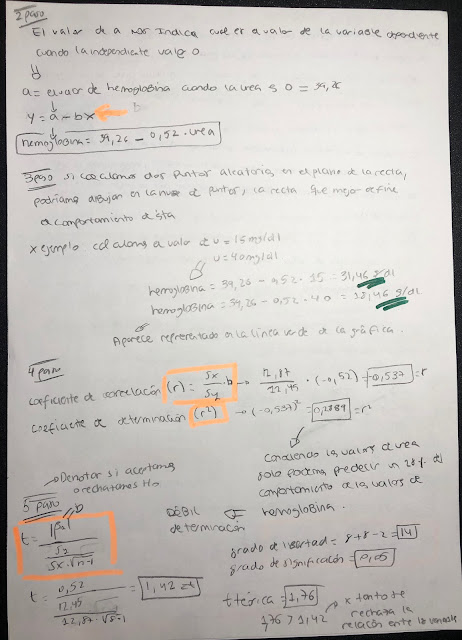 2 paso
El valor de a nos indica cual es a valor de la variable dependiente
cuando la independiente vale 0
a = el valor de hemoglobina cuando la urea es 0 = 39,26
y = a - bx ← b
hemoglobina = 39,26 - 0,52 · urea
3 paso si colocamos dos puntos aleatorios en el plano de la recta,
podríamos dibujar en la nube de puntos, la recta que mejor define
el comportamiento de ésta
x ejemplo calculamos a valor de u = 15 mg/dl
u = 40 mg/dl
hemoglobina = 39,26 - 0,52 · 15 = 31,46 g/dl
hemoglobina = 39,26 - 0,52 · 40 = 18,46 g/dl
Aparece representado en la línea verde de la gráfica.
4 paso
coeficiente de correlación (r) = Sx/Sy · b → 12,87/12,45 · (-0,52) = -0,537 = r
coeficiente de determinación (r²) → (-0,537)² = 0,2889 = r²
Conociendo los valores de urea
solo podemos predecir un 28% del
comportamiento de los valores de
hemoglobina.
DÉBIL
determinación
→ Denotar si aceptamos
o rechazamos H₀
5 paso
b
t = |β₂| / (Sy / (Sx · √n-1))
t = 0,52 / (12,45 / (12,87 · √8-1)) = 1,42 = t
grado de libertad = 8+8-2 = 14
grado de significación = 0,05
t teórica = 1,76
1,76 > 1,42
x tanto se
rechaza la
relación entre las variables